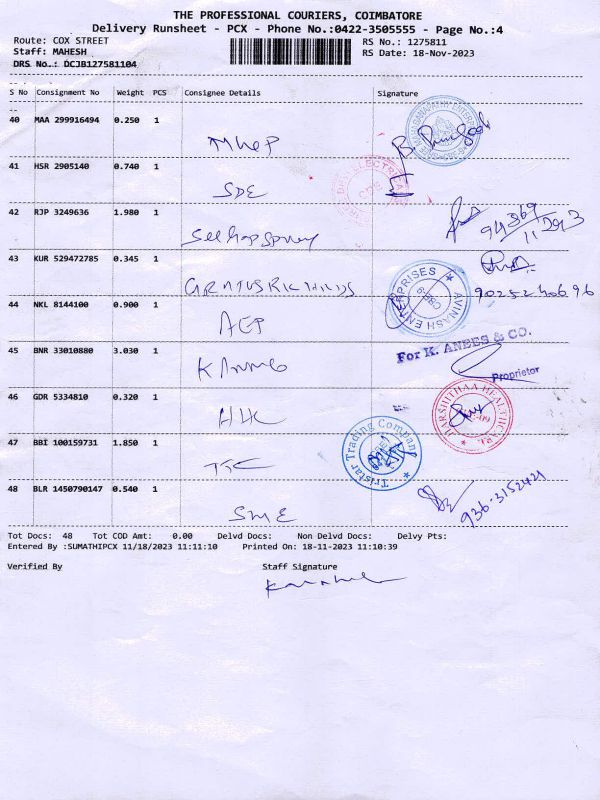 THE PROFESSIONAL COURIERS, COIMBATORE
Delivery Runsheet - PCX - Phone No.:0422-3505555 - Page No.:4
Route: COX STREET RS No.: 1275811
Staff: MAHESH RS Date: 18-Nov-2023
DRS No.: DCJB127581104
S No Consignment No Weight PCS Consignee Details Signature
40 MAA 299916494 0.250 1
MHEP
41 HSR 2905140 0.740 1
SDE
42 RJP 3249636 1.980 1
43 KUR 529472785 0.345 1
44 NKL 8144100 0.900 1
9025240696
AVINASH ENTERPRISES
AEP
45 BNR 33010880 3.030 1
For K. ANEES & CO.
Proprietor
46 GDR 5334810 0.320 1
HHC
HARSHITHAA HEALTHCARE
47 BBI 100159731 1.850 1
Tristar Trading Company
TTC
48 BLR 1450790147 0.540 1
936-3152421
SME
Tot Docs: 48 Tot COD Amt: 0.00 Delvd Docs: Non Delvd Docs: Delvy Pts:
Entered By :SUMATHIPCX 11/18/2023 11:11:10 Printed On: 18-11-2023 11:10:39
Verified By Staff Signature